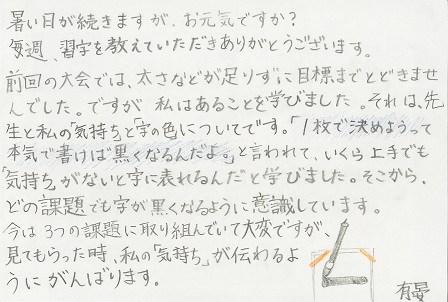 暑い日が続きますが、お元気ですか?
毎週、習字を教えていただきありがとうございます。
前回の大会では、太さなどが足りずに目標までとどきませ
んでした。ですが 私はあることを学びました。それは、先
生と私の「気持ち」と「字の色」についてです。「1枚で決めようって
本気で書けば黒くなるんだよ。」と言われて、いくら上手でも
「気持ち」がないと字に表れるんだと学びました。そこから、
どの課題でも字が黒くなるように意識しています。
今は3つの課題に取り組んでいて大変ですが、
見てもらった時、私の「気持ち」が伝わるよ
うにがんばります。